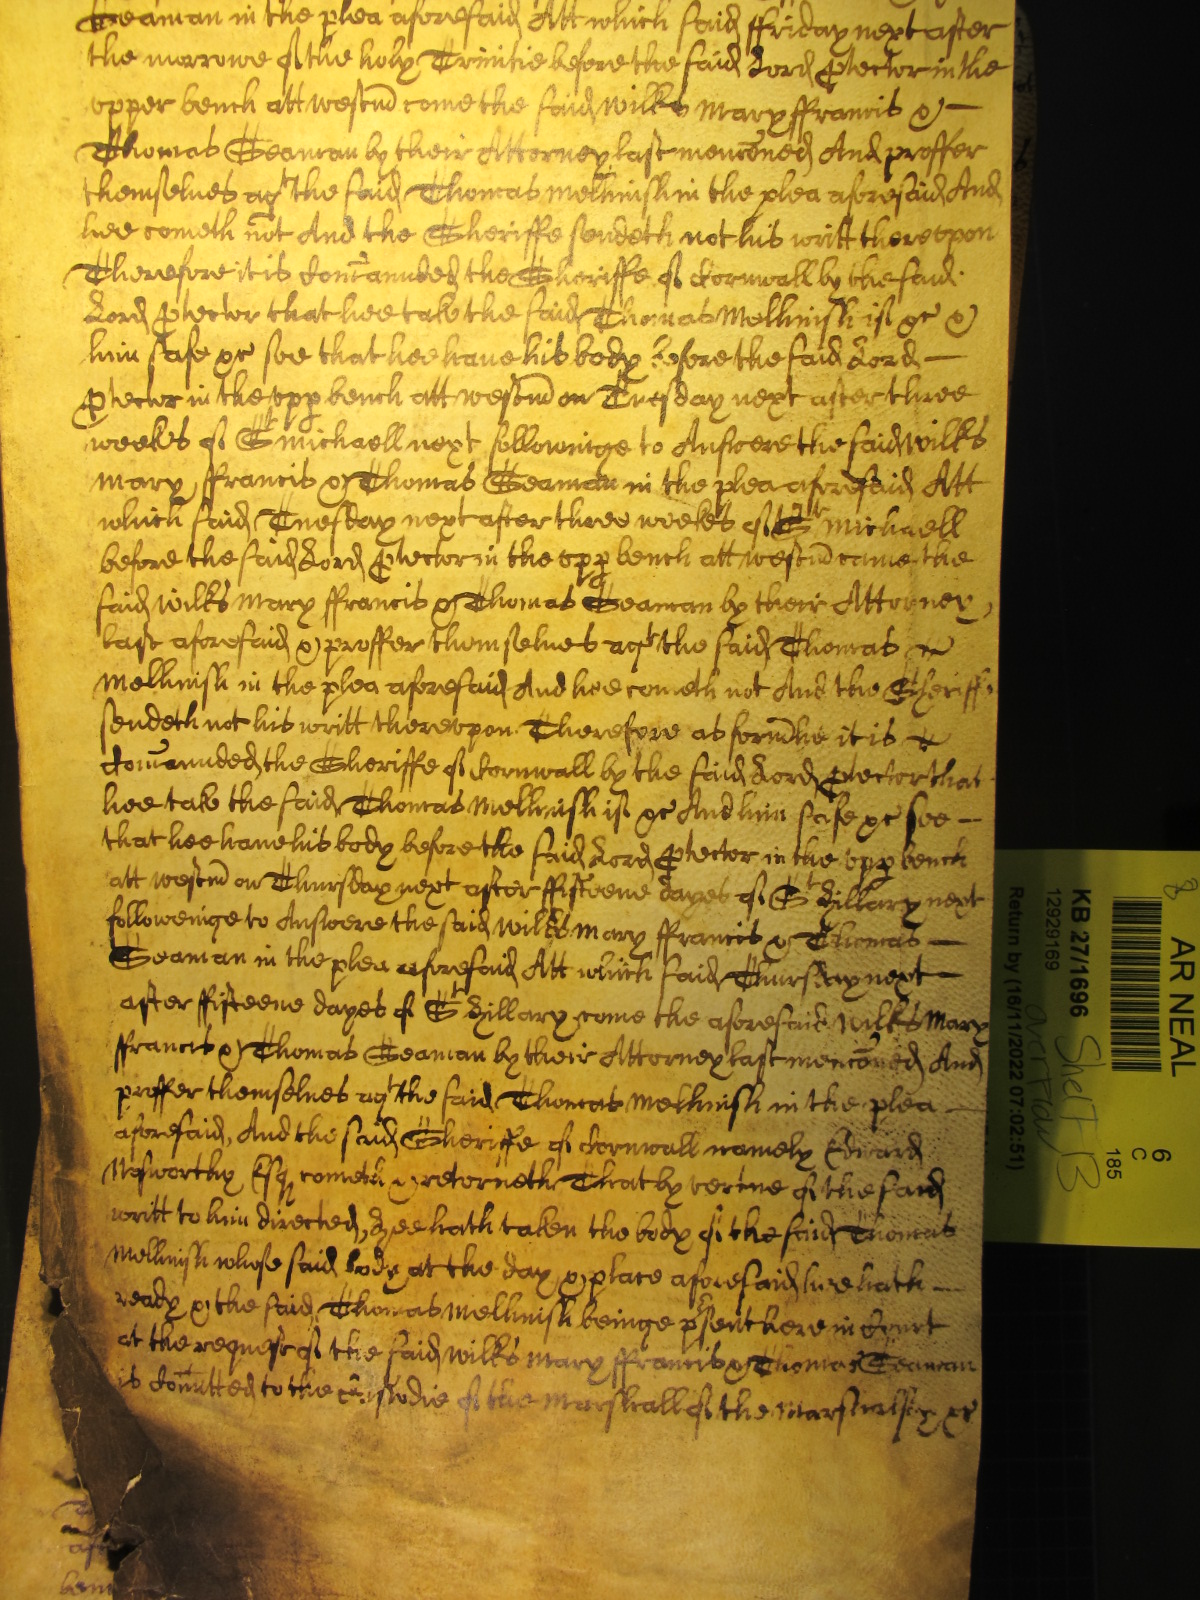 Seaman in the plea aforesaid Att which said ffriday next after
the morrowe of the holy Trinitie before the said Lord Ptector in the
upper bench att Westm̄ come the said Wilks Mary ffrancis &
Thomas Seaman by their Attorney last mencōned And proffer
themselves agt the said Thomas Mellinish in the plea aforesaid And
hee cometh not And the Sheriffe sendeth not his writt thereupon
Therefore it is Com̄anded the Sheriffe of Cornwall by the said
Lord Ptector that hee take the said Thomas Mellinish if &c &
him safe &c soe that hee have his body before the said Lord
Ptector in the upp bench att Westm̄ on Tuesday next after three
weekes of St Michaell next followinge to Answere the said Wilks
Mary ffrancis & Thomas Seaman in the plea aforesaid Att
which said Tuesday next after three weekes of St Michaell
before the said Lord Ptector in the upp bench att Westm̄ came the
said Wilks Mary ffrancis & Thomas Seaman by their Attorney
last aforesaid & proffer themselves agt the said Thomas
Mellinish in the plea aforesaid And hee cometh not And the Sheriffe
sendeth not his writt thereupon Therefore as form̄lie it is
Com̄anded the Sheriffe of Cornwall by the said Lord Ptector that
hee take the said Thomas Mellinish if &c And him safe &c soe
that hee have his body before the said Lord Ptector in the upp bench
att Westm̄ on Thursday next after ffifteene dayes of St Hillary next
followeinge to Answere the said Wilks Mary ffrancis & Thomas
Seaman in the plea aforesaid Att which said Thursday next
after ffifteene dayes of St Hillary come the aforesaid Wilks Mary
ffrancis & Thomas Seaman by their Attorney last mencōned And
proffer themselves agt the said Thomas Mellinish in the plea
aforesaid, And the said Sheriffe of Cornwall namely Edward
Nosworthy Esq cometh & retorneth That by vertue of the said
writt to him directed, Hee hath taken the body of the said Thomas
Mellinish whose said body at the day & place aforesaid hee hath
ready & the said Thomas Mellinish beinge psent here in Court
at the request of the said Wilks Mary ffrancis & Thomas Seaman
is Com̄itted to the Custodie of the Marshall of the Marshalsey &c
AR NEAL
8
6
C
185
KB 27/1696
12929169
Return by (16/11/2022 07:02:51)
Shelf 13